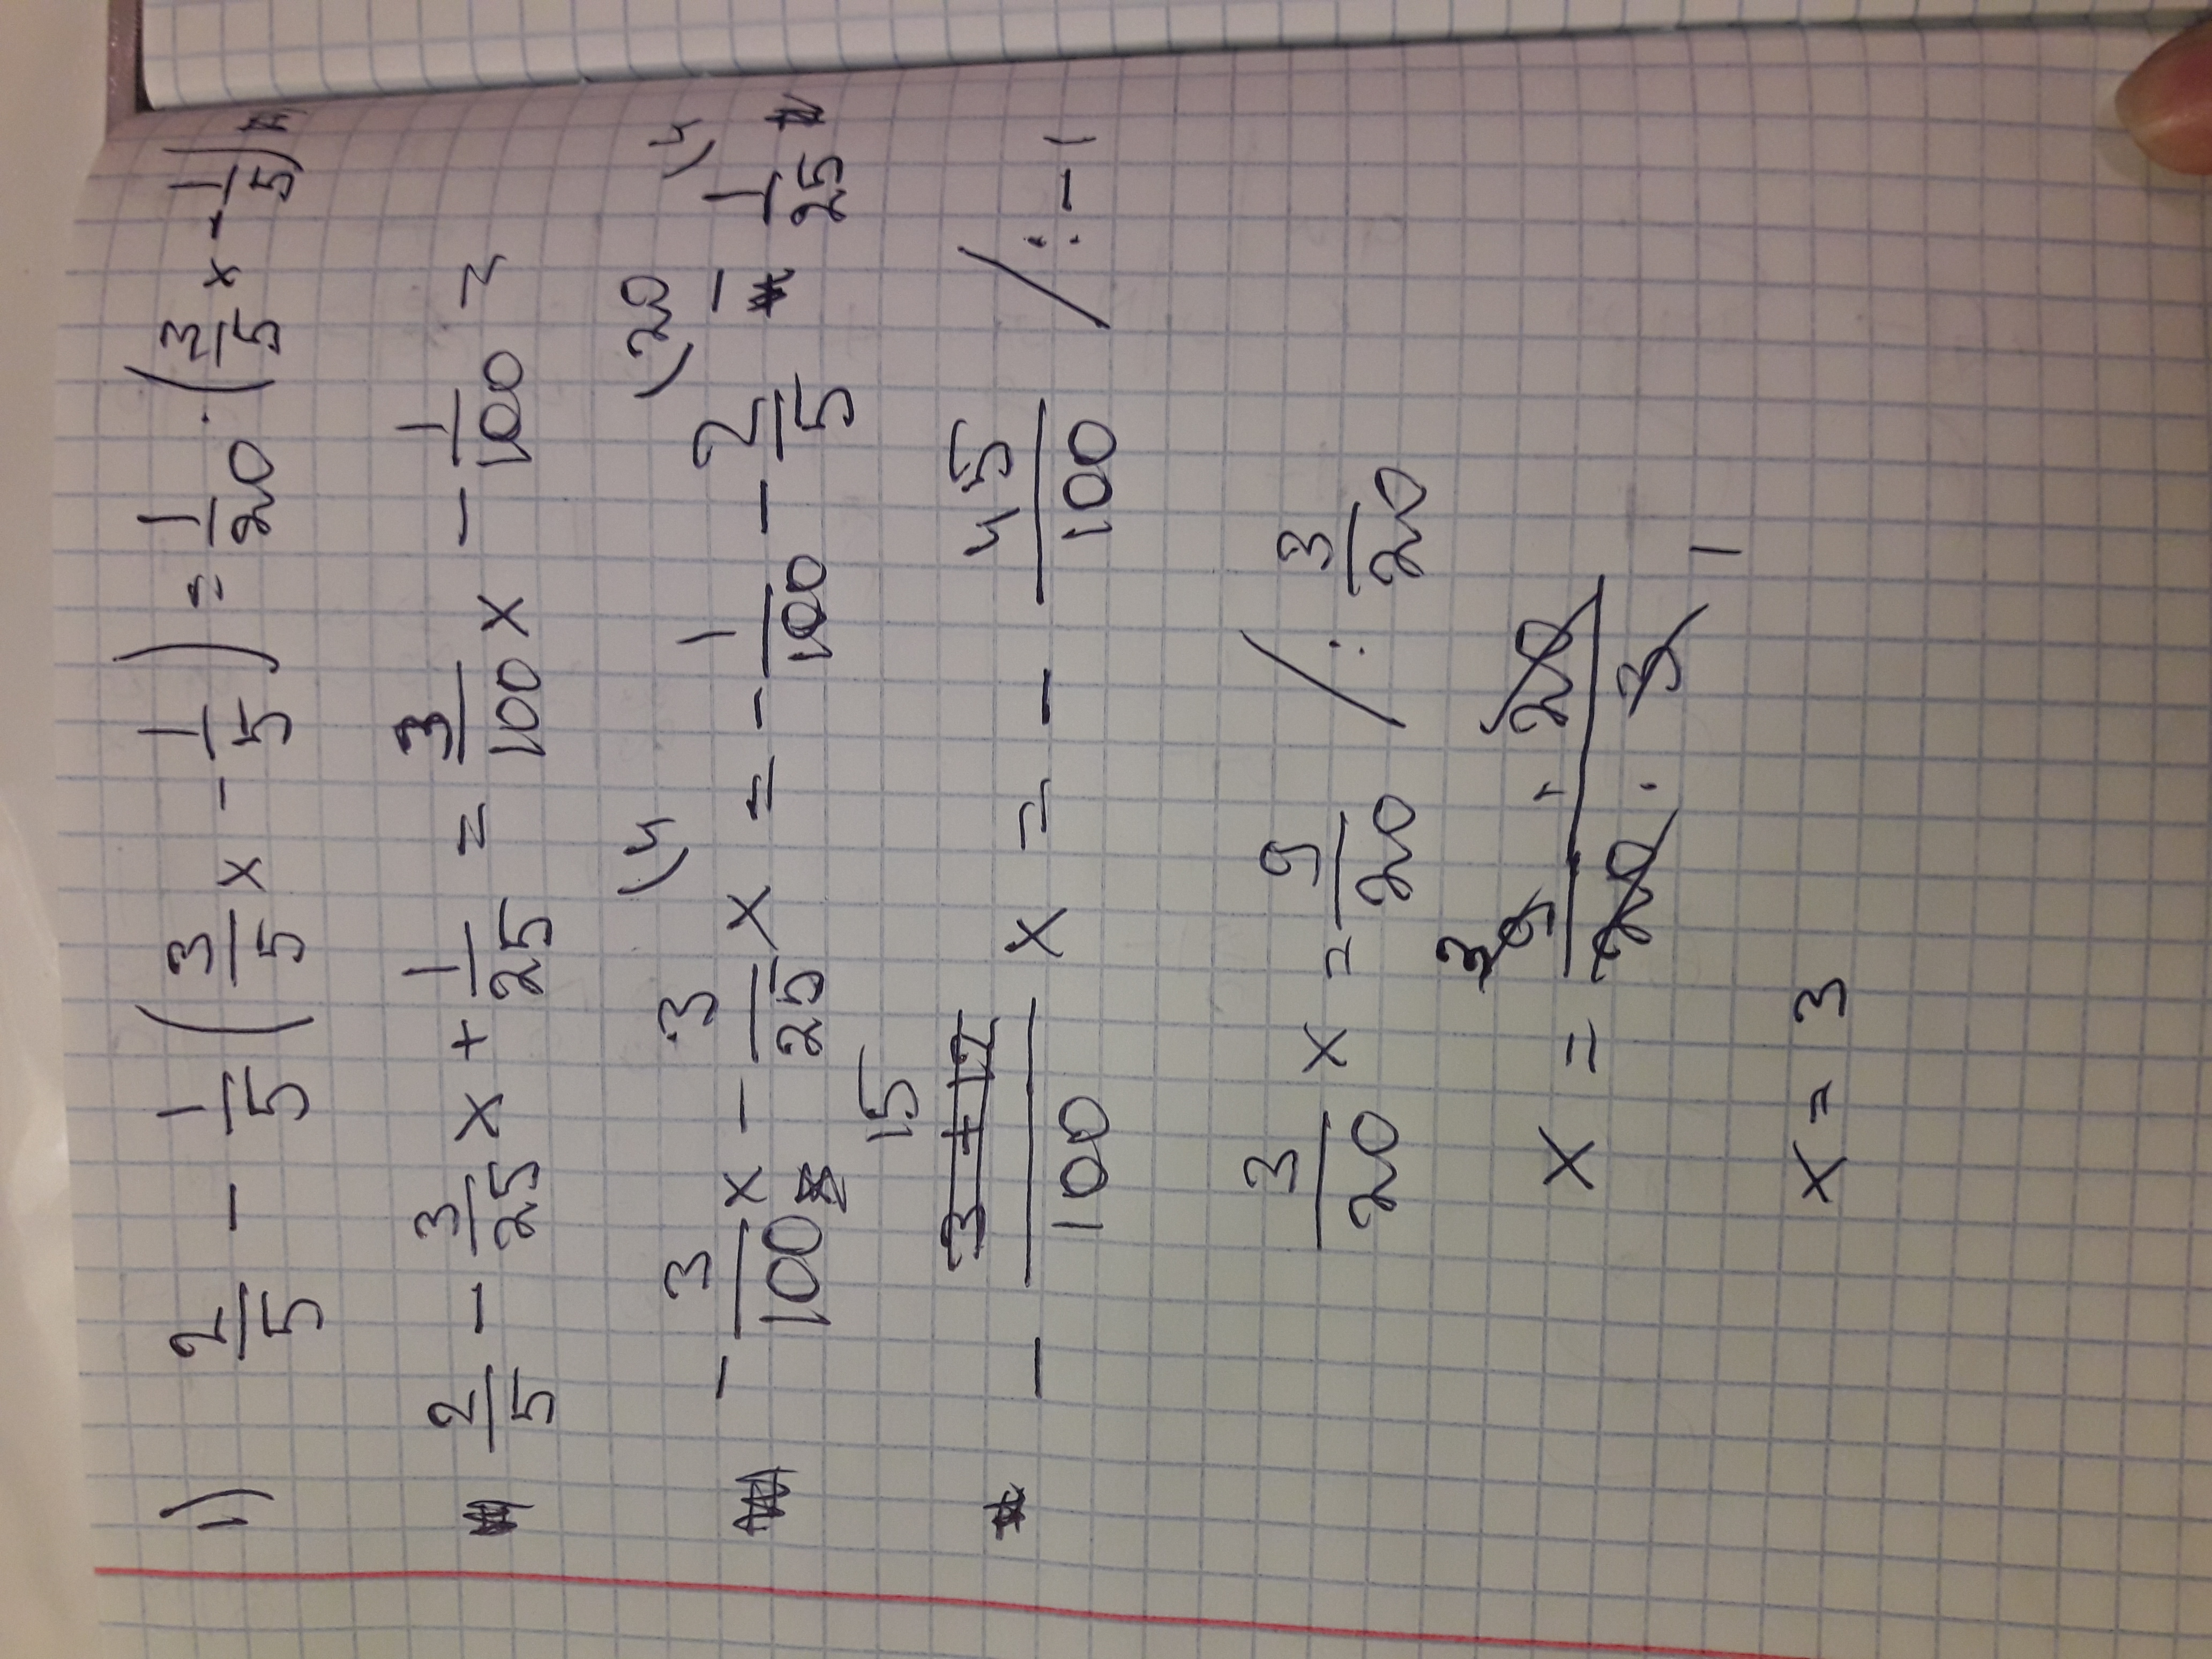 1) 2/5 - 1/5 (3/5 x - 1/5) = 1/20 · (3/5 x - 1/5)
2/5 - 3/25 x + 1/25 = 3/100 x - 1/100
(4 (20 (4
- 3/100 x - 3/25 x = - 1/100 - 2/5 - 1/25
15
- 3+12/100 x = - 45/100 / : -1
3/20 x = 9/20 / : 3/20
x = 3 9 · 20 / 20 · 3 1
x = 3